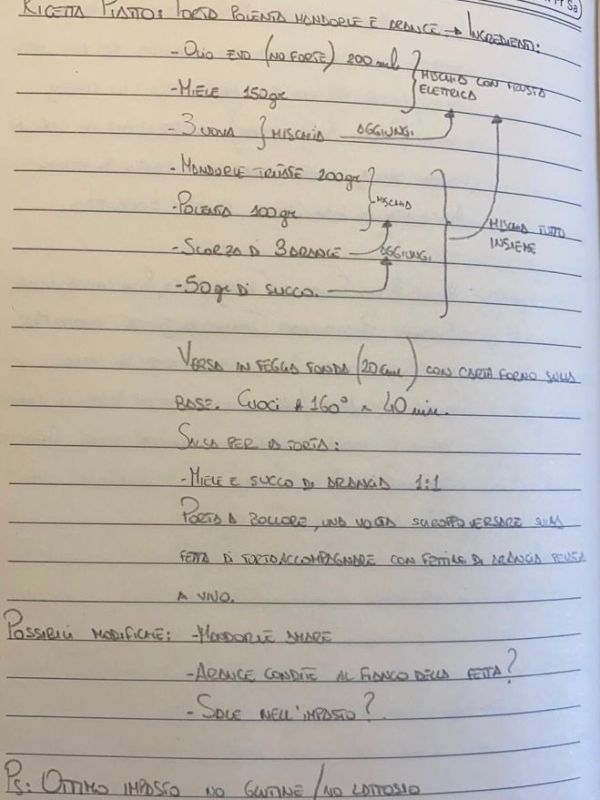 Ricetta Piatto: Torta Polenta Mandorle e Arance → Ingredienti:
- Olio Evo (no forte) 200ml
- Miele 150gr
Mischia con frusta elettrica
- 3 uova } Mischia aggiungi
- Mandorle tritate 200gr
- Polenta 100gr
Mischia
- Scorza di 3 arance aggiungi
- 50gr di succo.
Mischia tutto insieme
Versa in teglia tonda (20cm) con carta forno sulla
base. Cuoci a 160° x 40 min.
Salsa per la torta:
- Miele e succo di arancia 1:1
Porta a bollore, una volta sciroppo versare sulla
fetta di torta accompagnare con fettine di arancia pelata
a vivo.
Possibili modifiche: - Mandorle
- Arance condite al fianco della fetta?
- Sale nell'impasto?
Ps: Ottimo impasto no glutine / no lattosio